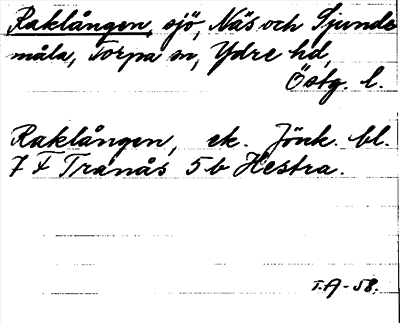 Raklången, sjö, Näs och Sjunde
måla, Torpa sn, Ydre hd,
Östg. l.
Raklången, ek. Jönk. bl.
7 F Tranås 5 b Hestra.
I.A-58.